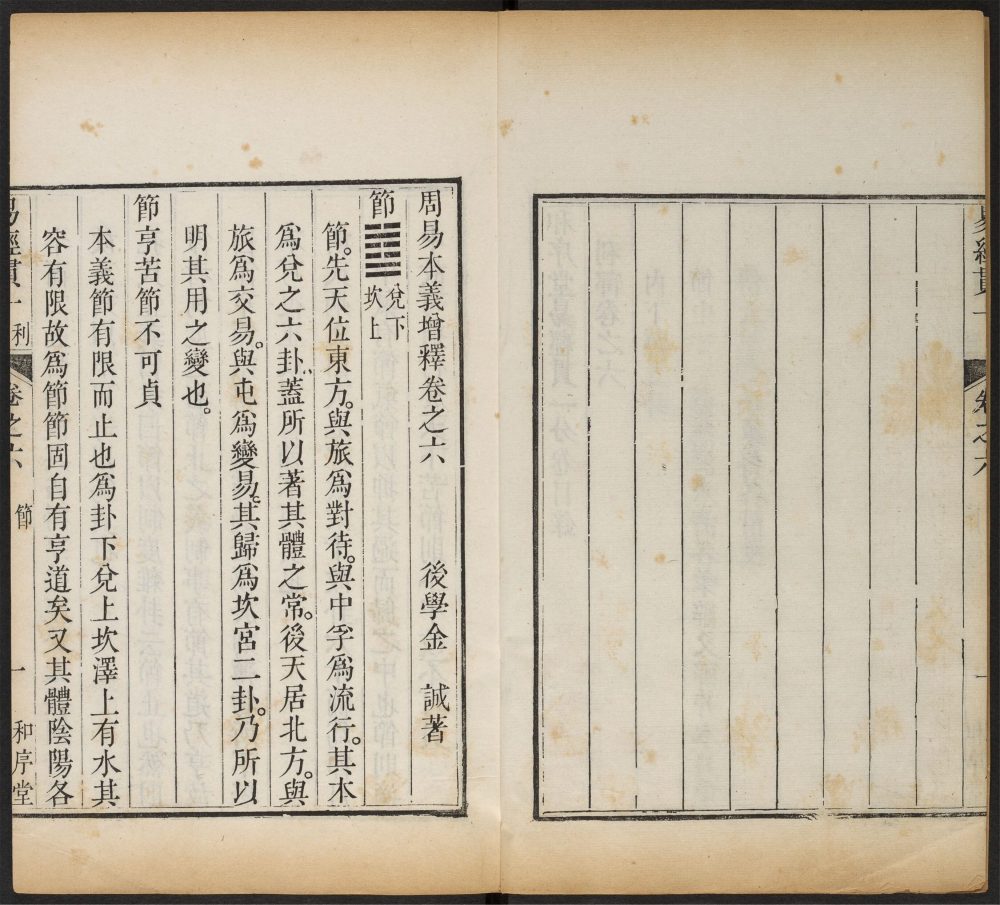 易經貫一
卷之六
一
周易本義增釋卷之六 後學金 誠著
節䷻兌下坎上
節。先天位東方。與旅爲對待。與中孚爲流行。其本
爲兌之六卦。蓋所以著其體之常。後天居北方。與
旅爲交易。與屯爲變易。其歸爲坎宮二卦。乃所以
明其用之變也。
節亨苦節不可貞
本義節有限而止也爲卦下兌上坎澤上有水其
容有限故爲節節固自有亨道矣又其體陰陽各
易經貫一 利 卷之六 節 一 和序堂